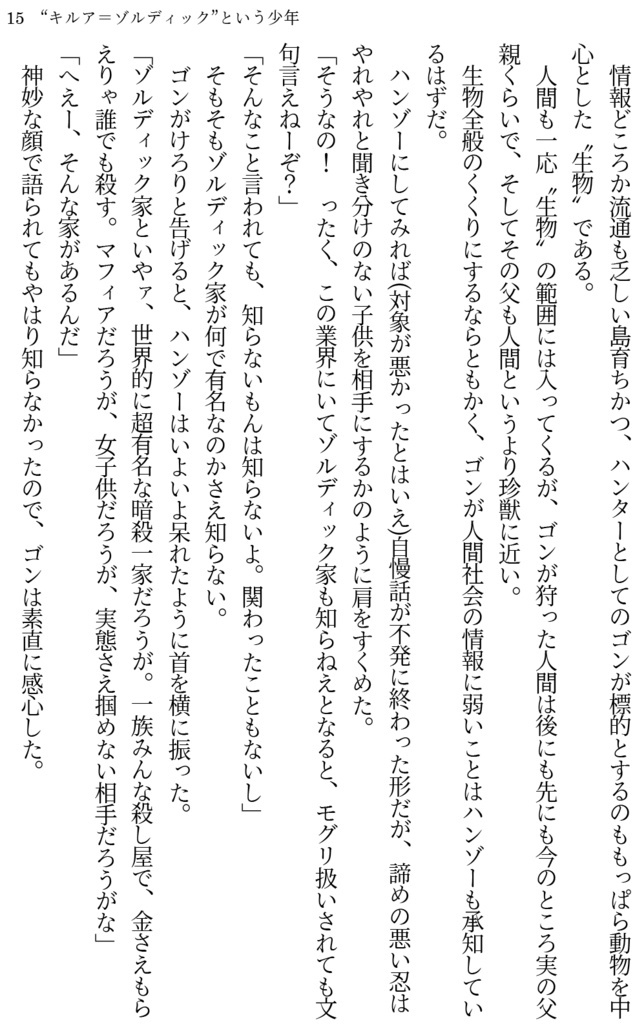 15 “キルア＝ゾルディック”という少年
情報どころか流通も乏しい島育ちかつ、ハンターとしてのゴンが標的とするのももっぱら動物を中
心とした〝生物〟である。
人間も一応〝生物〟の範囲には入ってくるが、ゴンが狩った人間は後にも先にも今のところ実の父
親くらいで、そしてその父も人間というより珍獣に近い。
生物全般のくくりにするならともかく、ゴンが人間社会の情報に弱いことはハンゾーも承知してい
るはずだ。
ハンゾーにしてみれば(対象が悪かったとはいえ)自慢話が不発に終わった形だが、諦めの悪い忍は
やれやれと聞き分けのない子供を相手にするかのように肩をすくめた。
「そうなの！　ったく、この業界にいてゾルディック家も知らねえとなると、モグリ扱いされても文
句言えねーぞ？」
「そんなこと言われても、知らないもんは知らないよ。関わったこともないし」
そもそもゾルディック家が何で有名なのかさえ知らない。
ゴンがけろりと告げると、ハンゾーはいよいよ呆れたように首を横に振った。
「ゾルディック家といやァ、世界的に超有名な暗殺一家だろうが。一族みんな殺し屋で、金さえもら
えりゃ誰でも殺す。マフィアだろうが、女子供だろうが、実態さえ掴めない相手だろうがな」
「へえー、そんな家があるんだ」
神妙な顔で語られてもやはり知らなかったので、ゴンは素直に感心した。